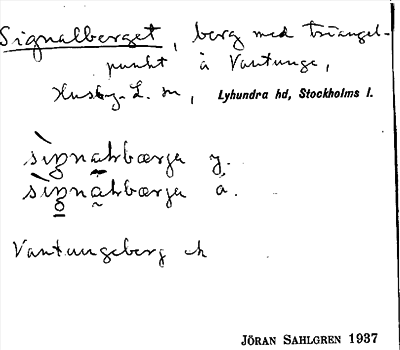 Signalberget, berg med triangel-
punkt å Vantunge,
Husby-L. sn, Lyhundra hd, Stockholms l.
sìgnahbærja y.
sìgnahbærja ä.
Vantungeberg ek
JÖRAN SAHLGREN 1937